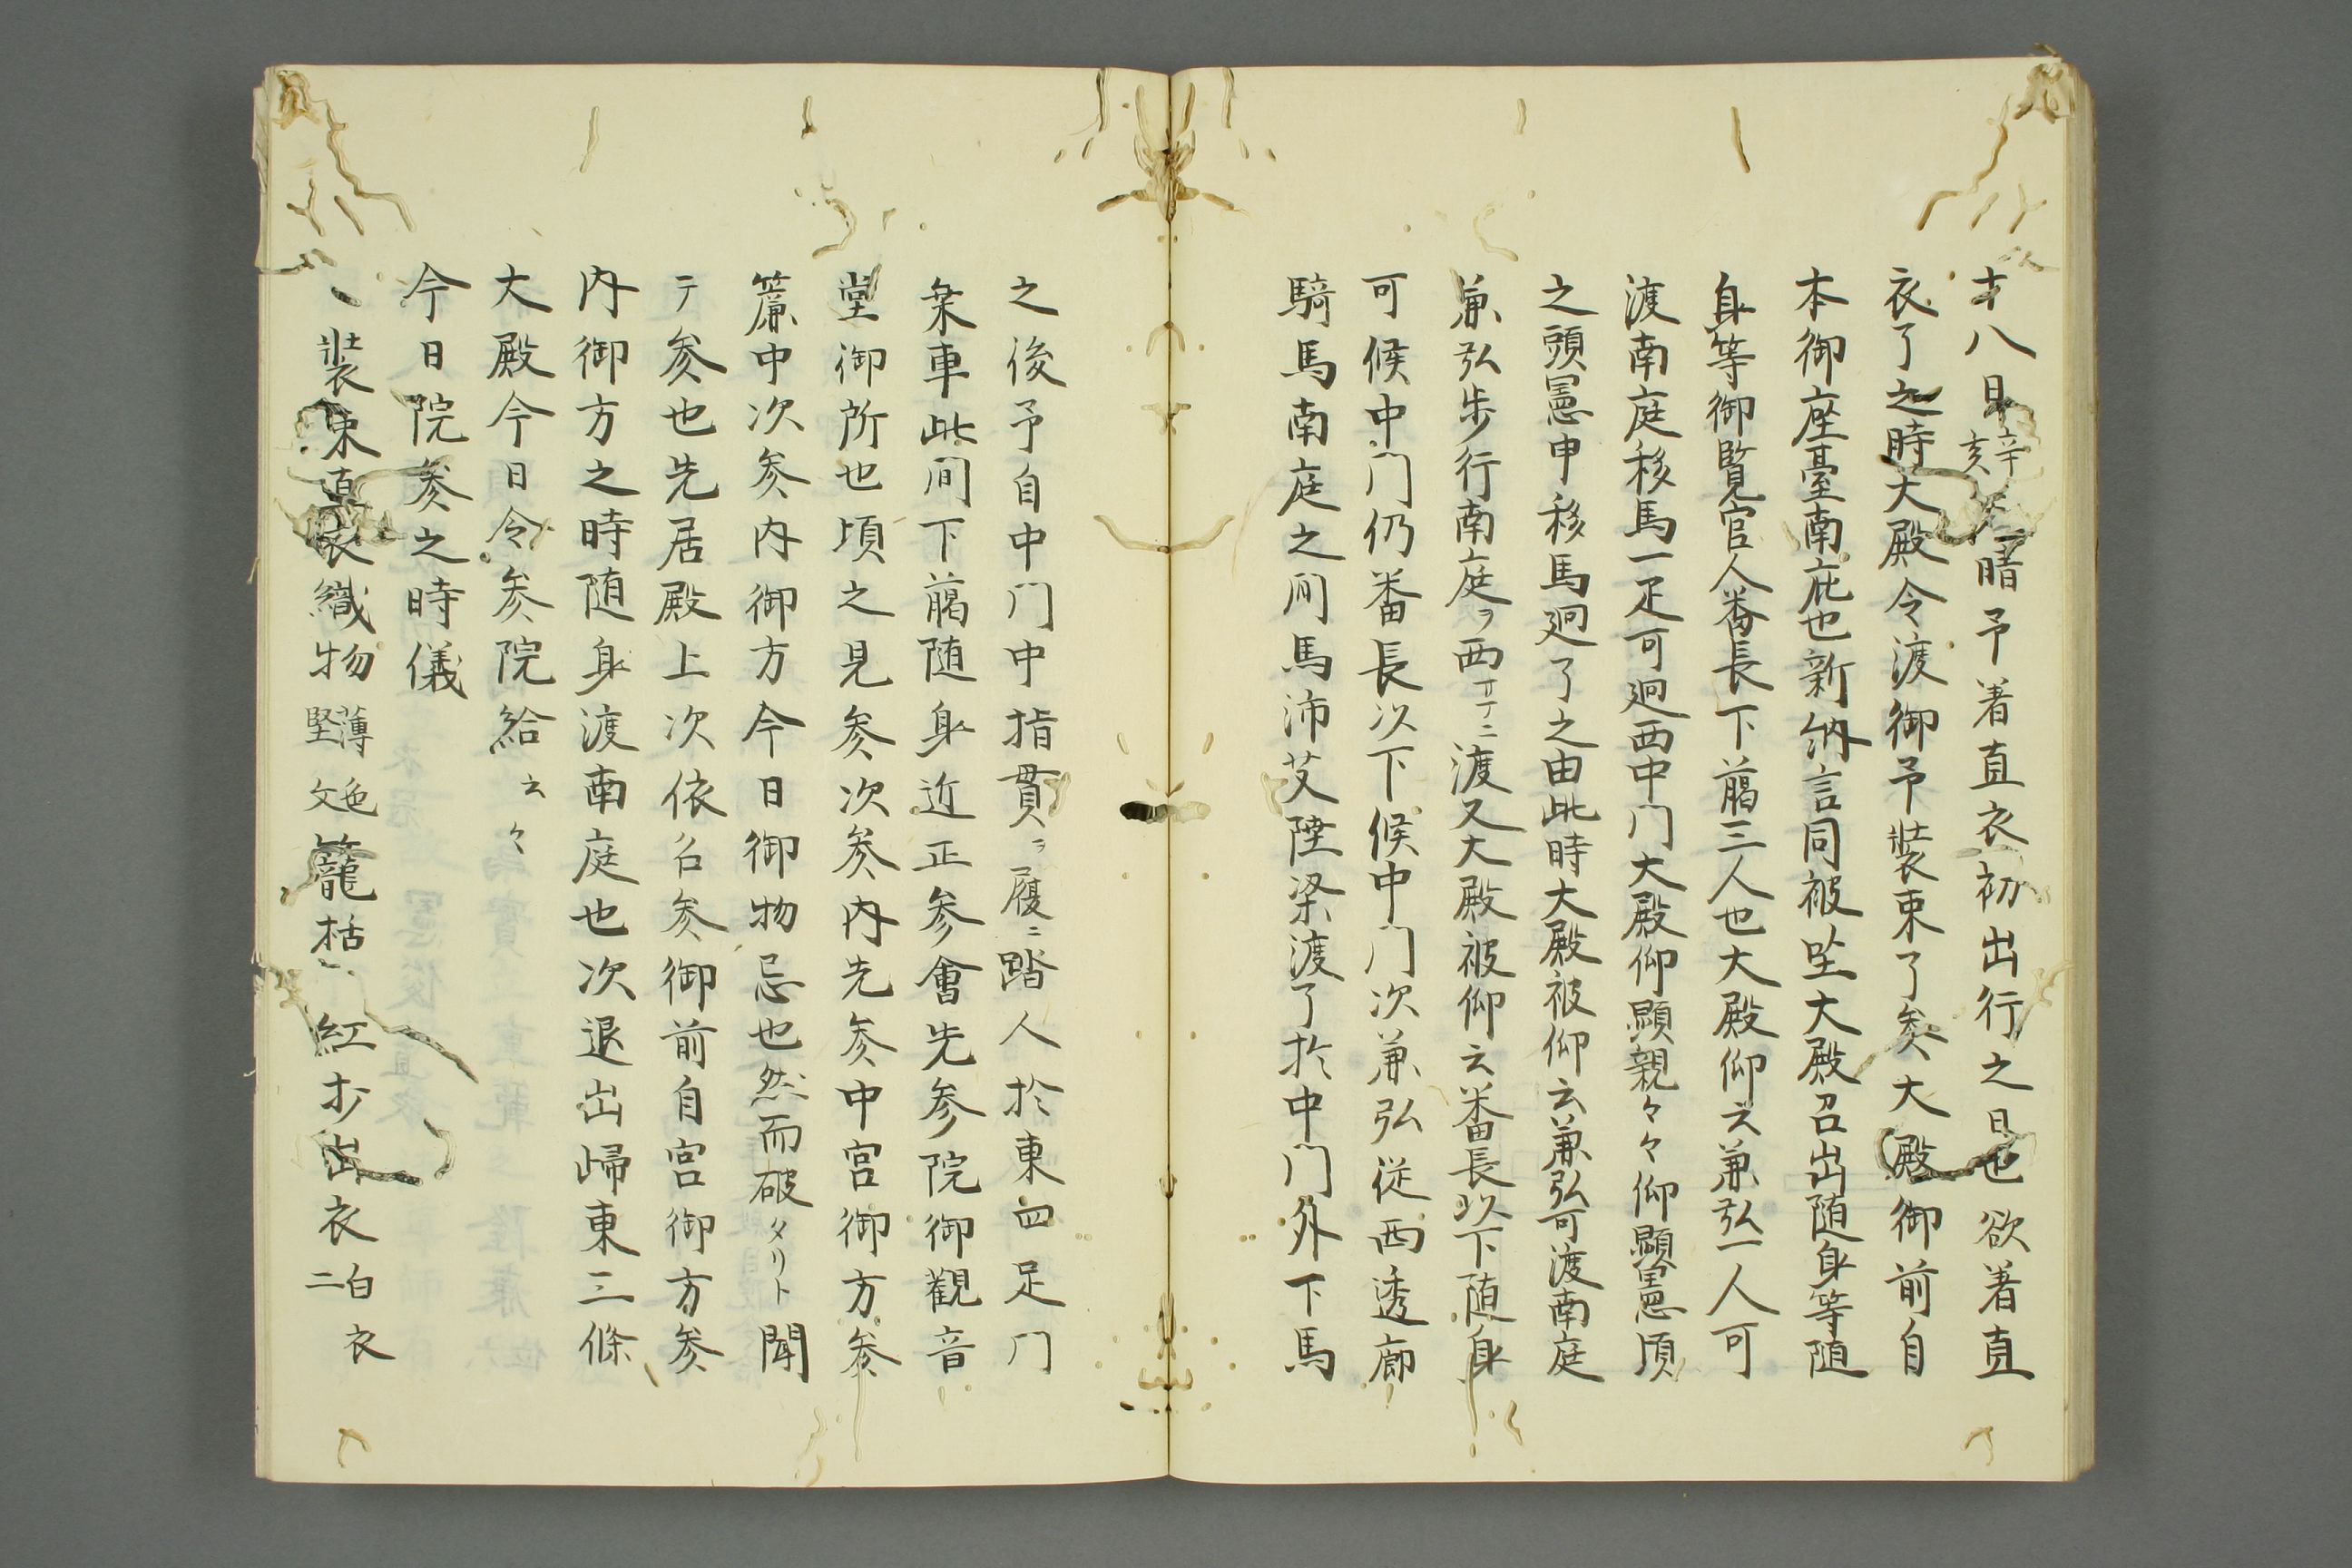 廿八日辛亥天晴予着直衣初出行之日也欲着直
衣了之時大殿令渡御予装束了参大殿御前自
本御座臺南庇也新納言同被坐大殿召出随身等随
身等御覧官人番長下﨟三人也大殿仰云兼弘一人可
渡南庭移馬一疋可廻西中门大殿仰顕親々々仰顕憲頃
之頭憲申移馬廻了之由此時大殿被仰云兼弘可渡南庭
兼弘歩行南庭ヲ西サマニ渡又大殿被仰云番長以下随身
可候中门仍番長以下候中门次兼弘従西透廊
騎馬南庭之间馬沛艾陸梁渡了於中门外下馬
之後予自中门中指貫ヲ履ニ踏人於東四足门
乗車此间下﨟随身近正参會先参院御觀音
堂御所也頃之見参次参内先参中宮御方参
簾中次参内御方今日御物忌也然而破タリト聞
テ参也先居殿上次依召参御前自宮御方参
内御方之時随身渡南庭也次退出歸東三條
大殿今日令参院給云々
今日院参之時儀
、装束直衣織物薄色堅文籠枯、紅打出衣白衣二